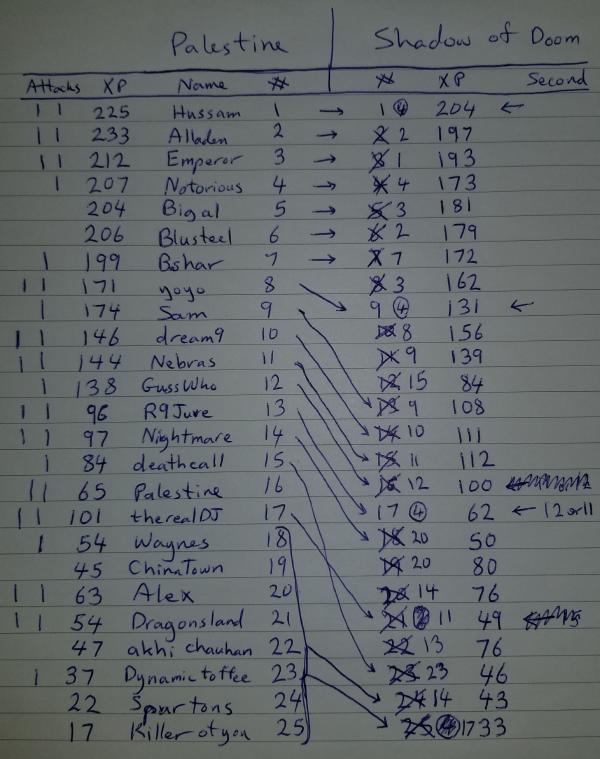 Palestine Shadow of Doom
Attacks XP Name # # XP Second
11 225 Hussam 1 → 1 ④ 204 ←
11 233 Alladen 2 → 2 197
11 212 Emperor 3 → 1 193
1 207 Notorious 4 → 4 173
204 Bigal 5 → 3 181
206 Blusteel 6 → 2 179
1 199 Bshar 7 → 7 172
11 171 yoyo 8 3 162
1 174 Sam 9 9 ④ 131 ←
11 146 dream9 10 8 156
11 144 Nebras 11 9 139
1 138 GussWho 12 15 84
11 96 R9Juve 13 9 108
11 97 Nightmare 14 10 111
1 84 deathcall 15 11 112
11 65 Palestine 16 12 100
11 101 therealDJ 17 17 ④ 62 ← 12 or 11
1 54 Waynes 18 20 50
45 ChinaTown 19 20 80
11 63 Alex 20 14 76
11 54 Dragonsland 21 11 49
47 akhi chauhan 22 13 76
1 37 Dynamic toffee 23 23 46
22 Spartons 24 14 43
17 Killer of you 25 ④ 17 33